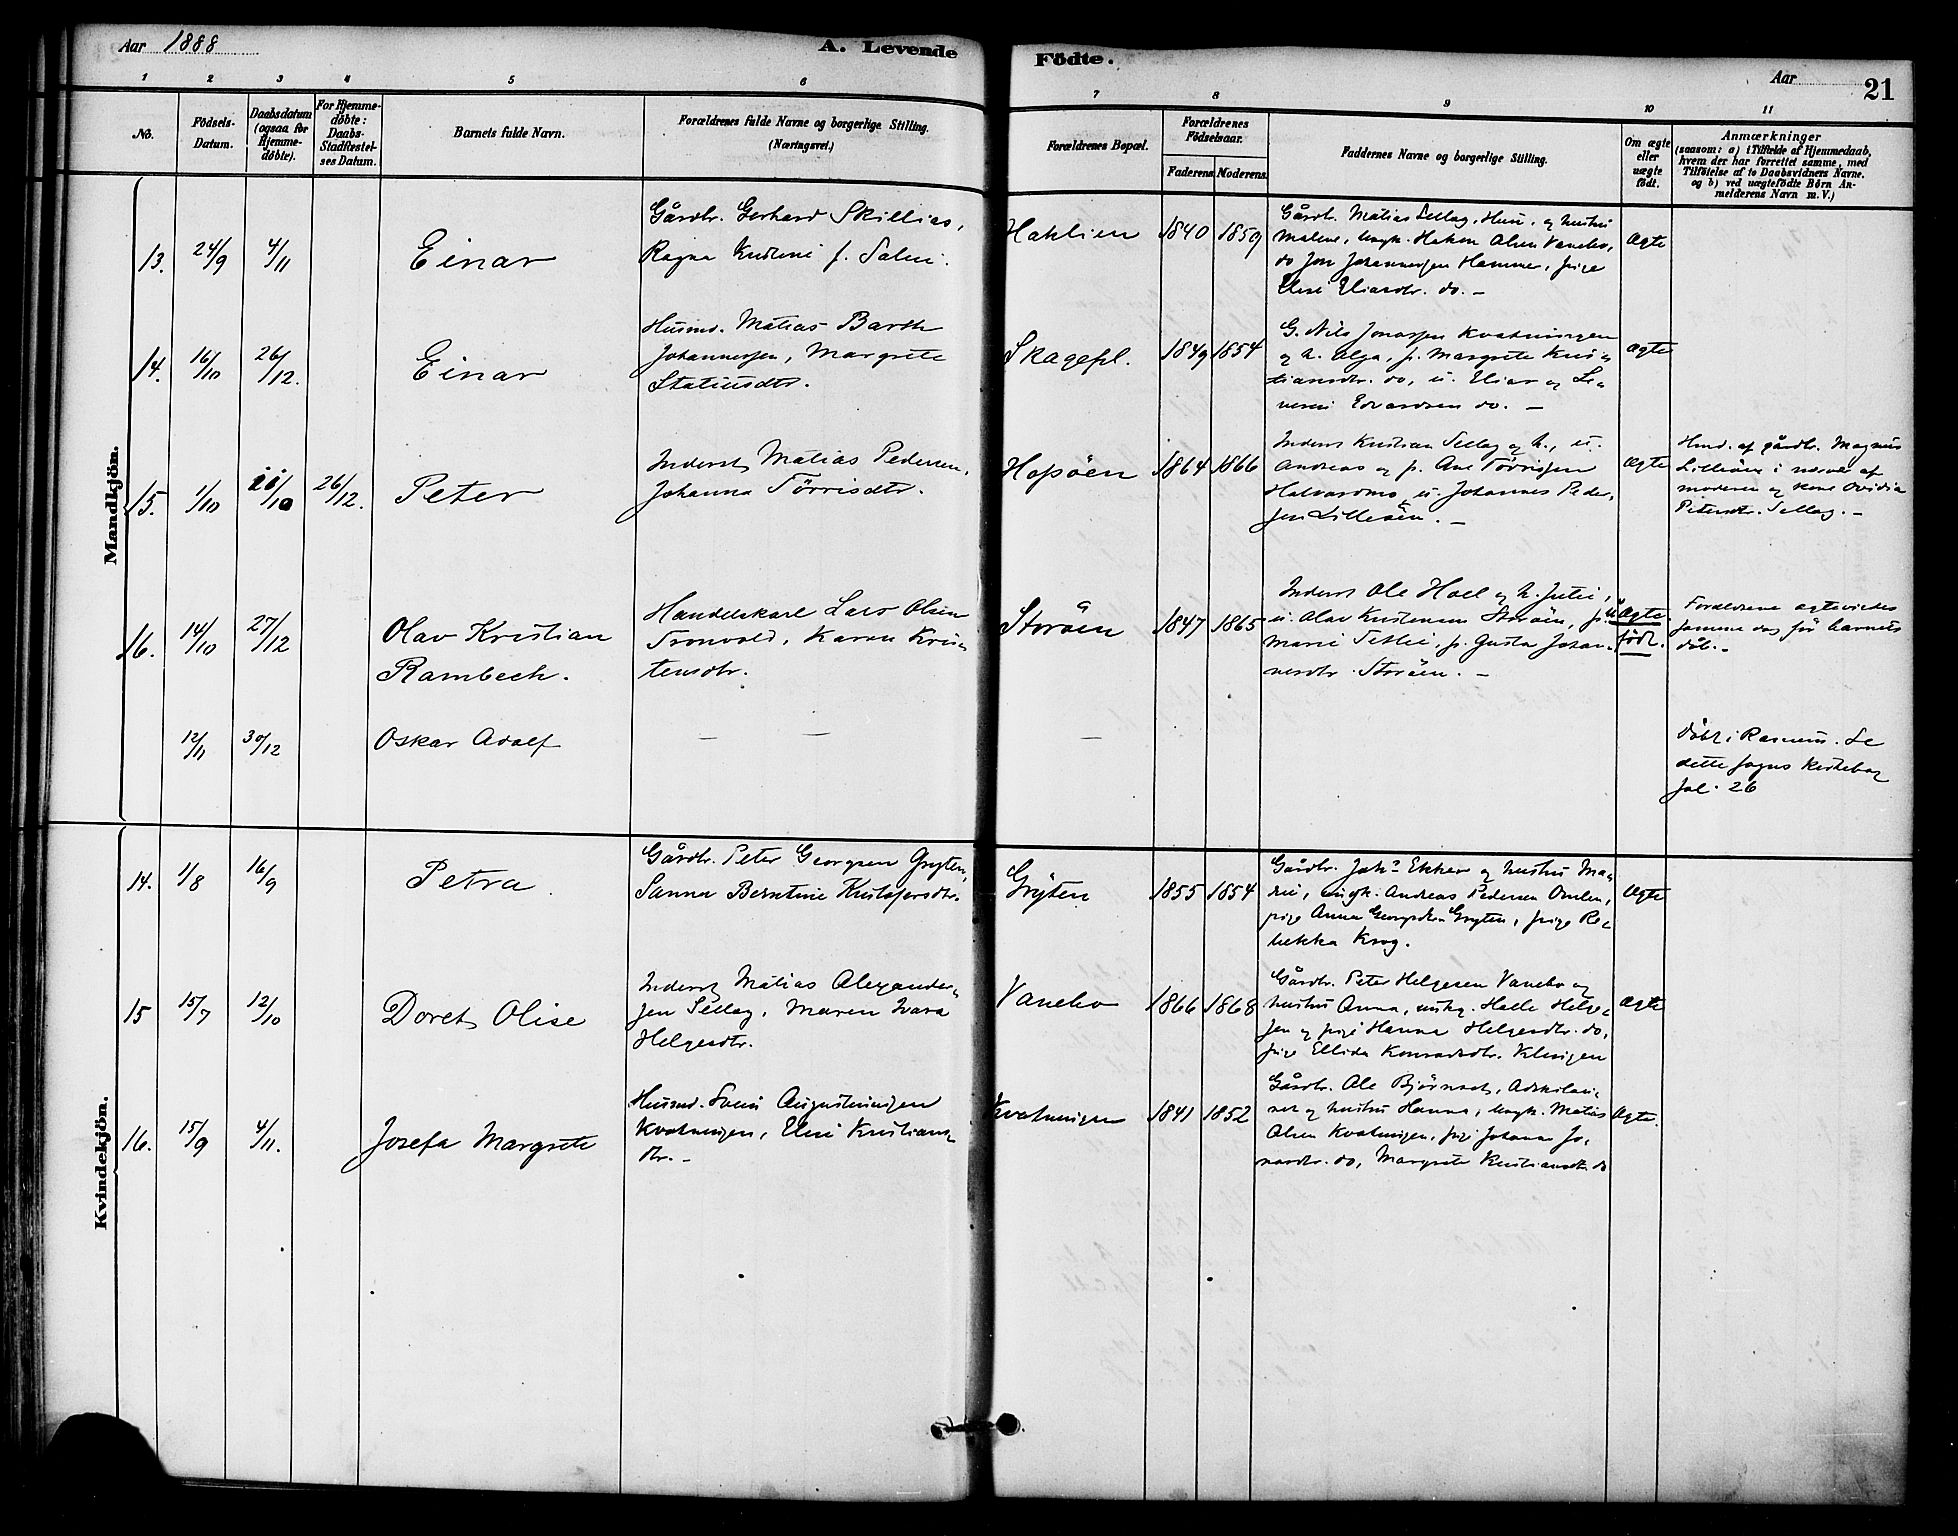 Aar 1888
A. Levende
Födte.
Aar
21
1 2 3 4 5 6 7 8 9 10 11
No.
Födsels-
Datum.
Daabsdatum
(ogsaa for
Hjemme-
döbte).
For Hjemme-
döbte:
Daabs-
Stadfæstel-
ses Datum.
Barnets fulde Navn.
Forældrenes fulde Navne og borgerlige Stilling.
(Næringsvei.)
Forældrenes Bopæl.
Forældrenes
Födselsaar.
Faderens Moderens.
Faddernes Navne og borgerlige Stilling.
Om ægte
eller
uægte
födt.
Anmærkninger
(saasom: a) i Tilfælde af Hjemmedaab,
hvem der har forrettet samme, med
Tilföielse af to Daabsvidners Navne.
og b) ved uægtefödte Börn An-
melderens Navn m. V.)
Mandkjön.
13. 24/9 4/11 Einar
Gårdbr. Gerhard Skillias,
Ragna f. Salvi.
Haklien 1840 1859
Gårdbr. Matias Sellæg, Husu. og hustru
Malene, ungk. Hakon Olsen Vanebo,
do Jon Johannessen Hammer, pige
Eliasdtr. do. —
Ægte
14. 16/10 26/12. Einar
Husmd. Matias Barth
Johannessen, Margrete
Statiusdtr.
Skagepl. 1849 1854
G. Nils Jonassen Kvatningen
og h. Olga, p. Margrete Kris-
tiansdtr. do, u. Elias og Se-
verin Edvardsen do. —
Ægte
15. 1/10 11/10 26/12. Peter
Inderst Matias Pedersen,
Johanna Törrisdtr.
Hopöen 1864 1866
Inderst Kristian Sellæg og h., u.
Andreas og p. Ane Törrissen
Halvardmo, u. Johannes Peder-
sen Lilleöen. —
Ægte
Hmd. af gårdbr. Magnus
Lilleöen i nærvær af
moderen og kone Ovidia
Petersdtr. Sellæg. —
16. 14/10 27/12 Olav Kristian
Rambech.
Handelskarl Lars Olsen
Tronvold, Karen Kris-
tensdtr.
Storöen 1847 1865
Inderst Ole Hoel og h. Julie,
u. Olav Kristensen Storöen, p.
Marie Setlie, p. Gusta Johan-
nesdtr Storöen. —
u Ægte
födt.
Forældrene ægteviedes
samme dag för barnets
dåb. —
12/11 30/12 Oskar Adolf — — —
Döbt i Ranem. Se
dette sogns kirkebog
fol. 26
Kvindekjön.
14. 1/8 16/9 Petra.
Gårdbr. Peter Georgsen Gryten,
Sanna Berntine Kristofersdtr.
Gryten 1855 1854
Gårdbr. Johs Ekker og hustru Ma-
rie, ungk. Andreas Pedersen Omlen,
pige Anna Georgsdtr Gryten, pige Re-
bekka Krog.
Ægte
15 15/7 12/10 Doret Olise
Inderst Matias Alexander-
sen Sellæg, Maren
Helgesdtr.
Vanebo 1866 1868
Gårdbr. Peter Helgesen Vanebo og
hustru Anna, ungk. Halle Helge-
sen og pige Hanna Helgesdtr. do,
pige Ellida Konradsdtr. Klungen
Ægte
16. 15/9 4/11. Josefa Margrete
Husmd. Svein Augustinussen
Kvatningen, Kristians-
dtr. —
Kvatningen 1841 1852
Gårdbr. Ole Björnset,
og hustru Hanna, ungk. Matias
Olsen Kvatningen, pige Johanna Jo-
nasdtr. do, Margrete Kristiansdtr. do
Ægte.